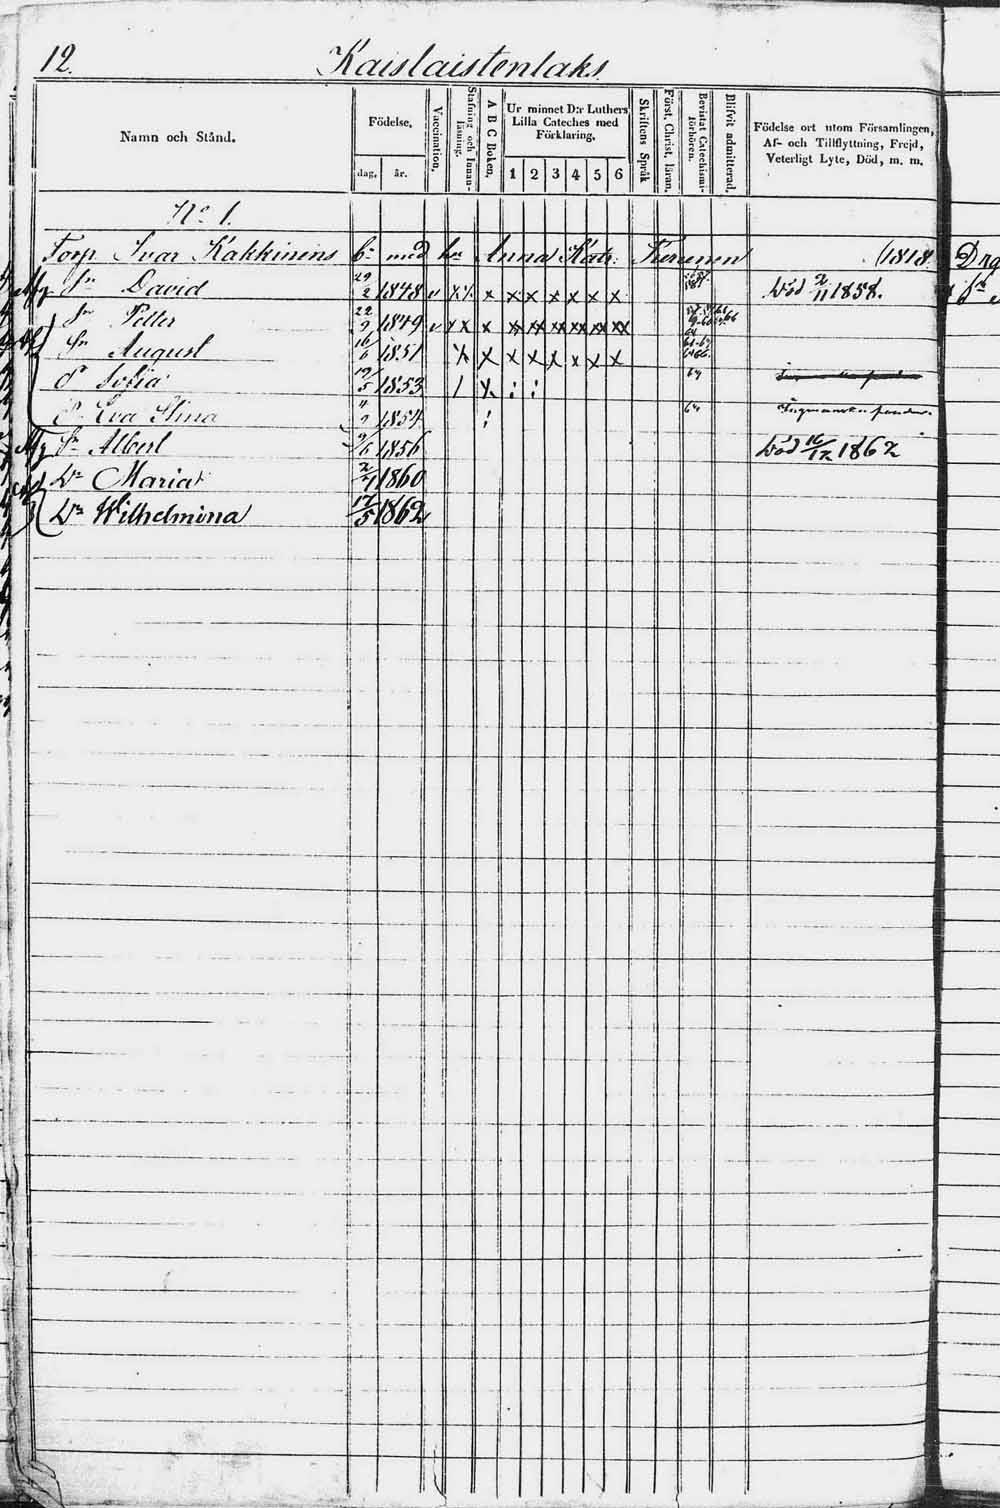 12.
Kaislaistenlaks.
Namn och Stånd.
Födelse,
dag,
år.
Vaccination,
Stafning och Innan-
läsning.
A B C Boken,
Ur minnet D:r Luthers
Lilla Cateches med
Förklaring,
1 2 3 4 5 6
Skriftens Språk
Först. Christ. läran,
Bevistat Catechismi-
förhören.
Blifvit admitterad,
Födelse ort utom Församlingen,
Af- och Tillflyttning, Frejd,
Veterligt Lyte, Död, m. m.
No 1.
Torp Ivar Kakkinens b:n med hu Anna Kats: (1818. Drag
Sn David 29/2 1848 v x x x x x x x x x död 2/11 1858.
Sn Petter 22/9 1849 v x x x xx xx xx xx xx xx
Sn August 16/6 1851 x x x x x x x x
D Sofia 19/5 1853 / x : : 64
D Eva Stina 1854 : 64
Sn Albert 9/6 1856 död 16/12 1862
Dr Maria 1860
Dr Wilhelmina 17/5 1862